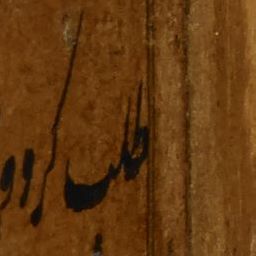 طلب کرد و